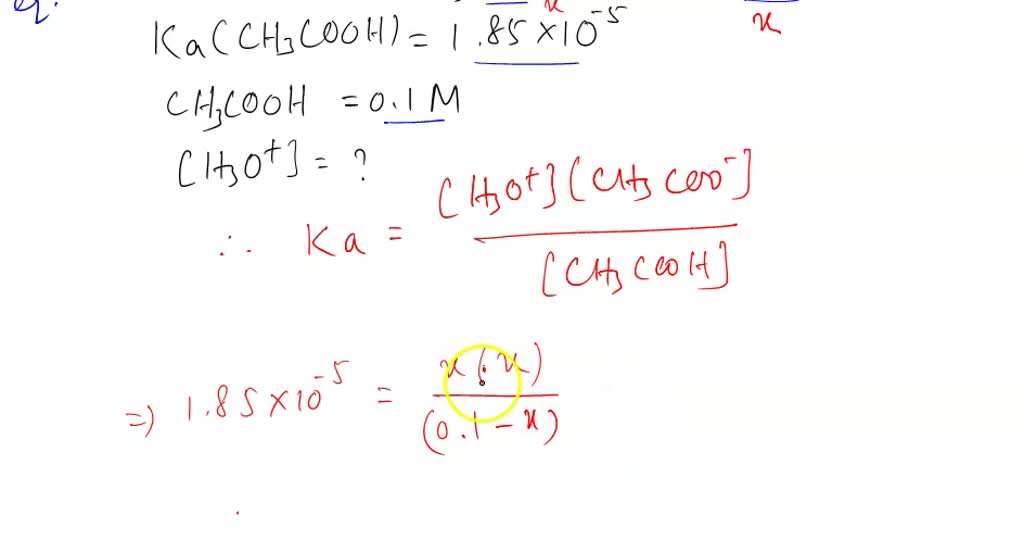 x x
Ka(CH3COOH) = 1.85 × 10^-5
CH3COOH = 0.1 M
[H3O+] = ?
∴ Ka = [H3O+][CH3COO-] / [CH3COOH]
=> 1.85 × 10^-5 = x(x) / (0.1 - x)